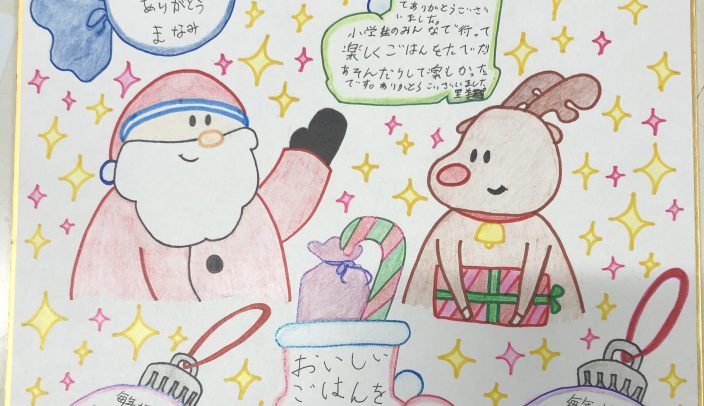 ありがとう
まなみ
てありがとうござい
いました。
小学生のみんなで行って
楽しくごはんをたべたり
あそんだりして楽しかった
です。ありがとうございました。
おいしい
ごはんを
毎年
毎年